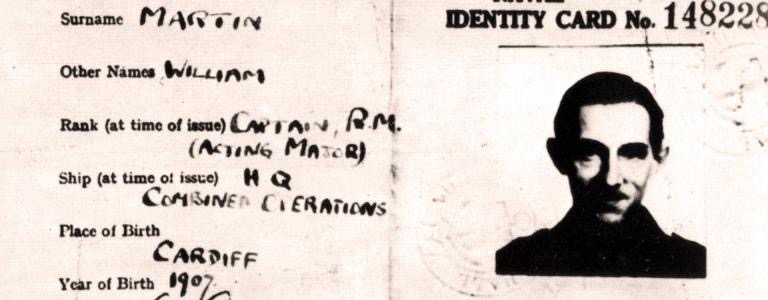 Surname MARTIN
Other Names WILLIAM
Rank (at time of issue) CAPTAIN, R.M.
(ACTING MAJOR)
Ship (at time of issue) H Q
COMBINED OPERATIONS
Place of Birth
CARDIFF
Year of Birth 1907
IDENTITY CARD No. 148228